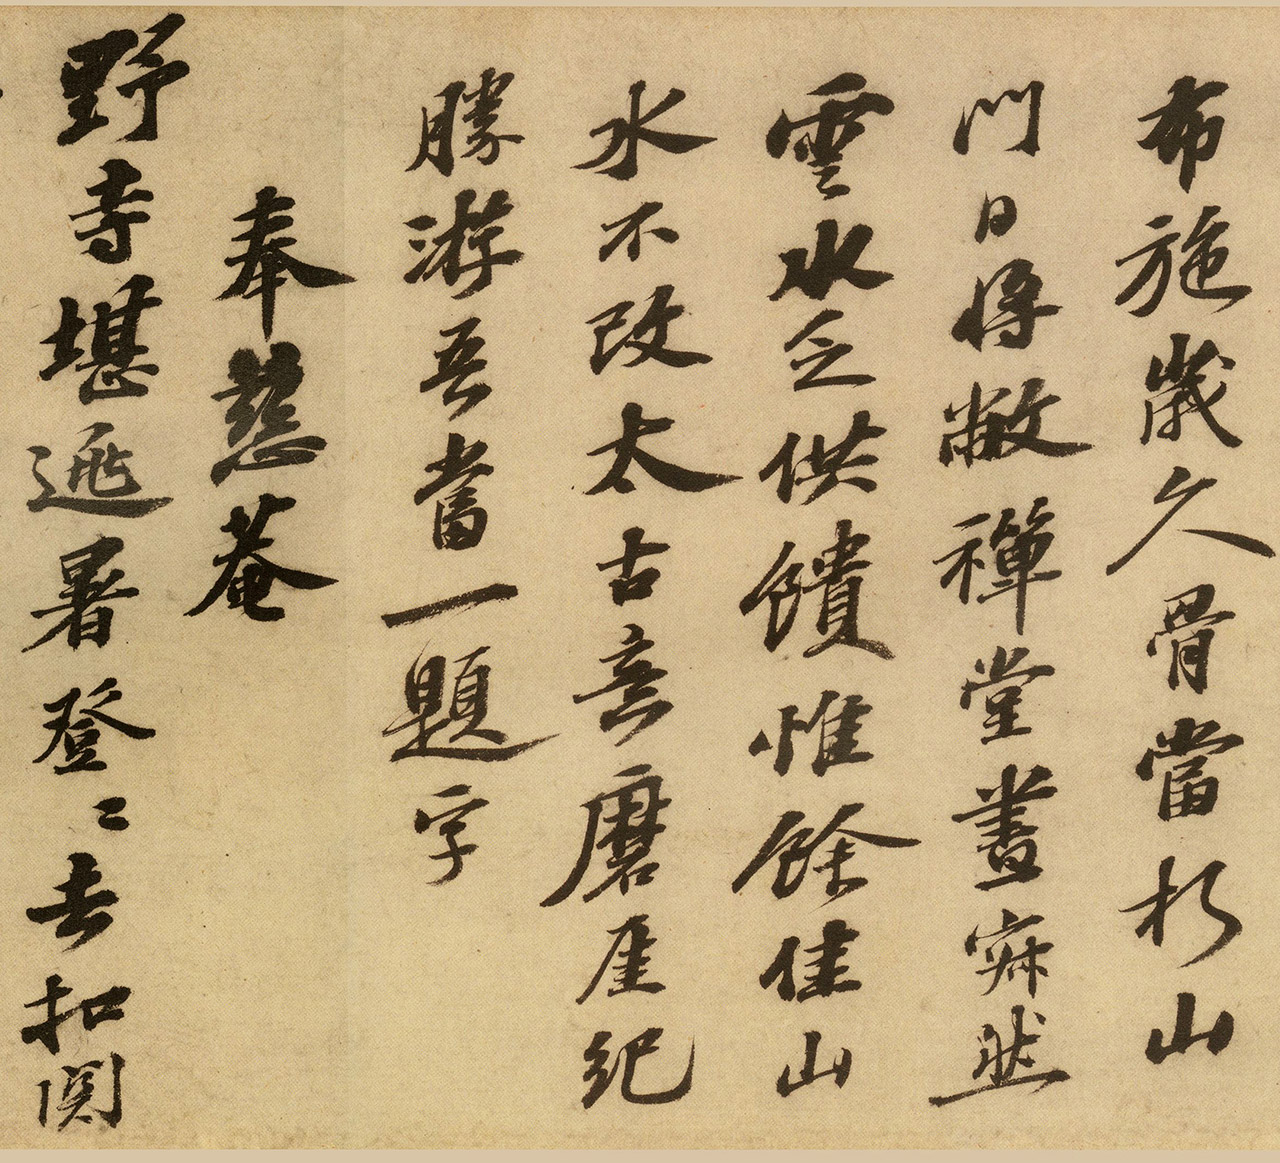 布施歲久骨當朽山
門日将敝禪堂晝寂然
雲水乏供饋惟餘佳山
水不改太古意磨厓紀
勝游吾當一題字
奉慈菴
野寺堪逃暑登々去扣関